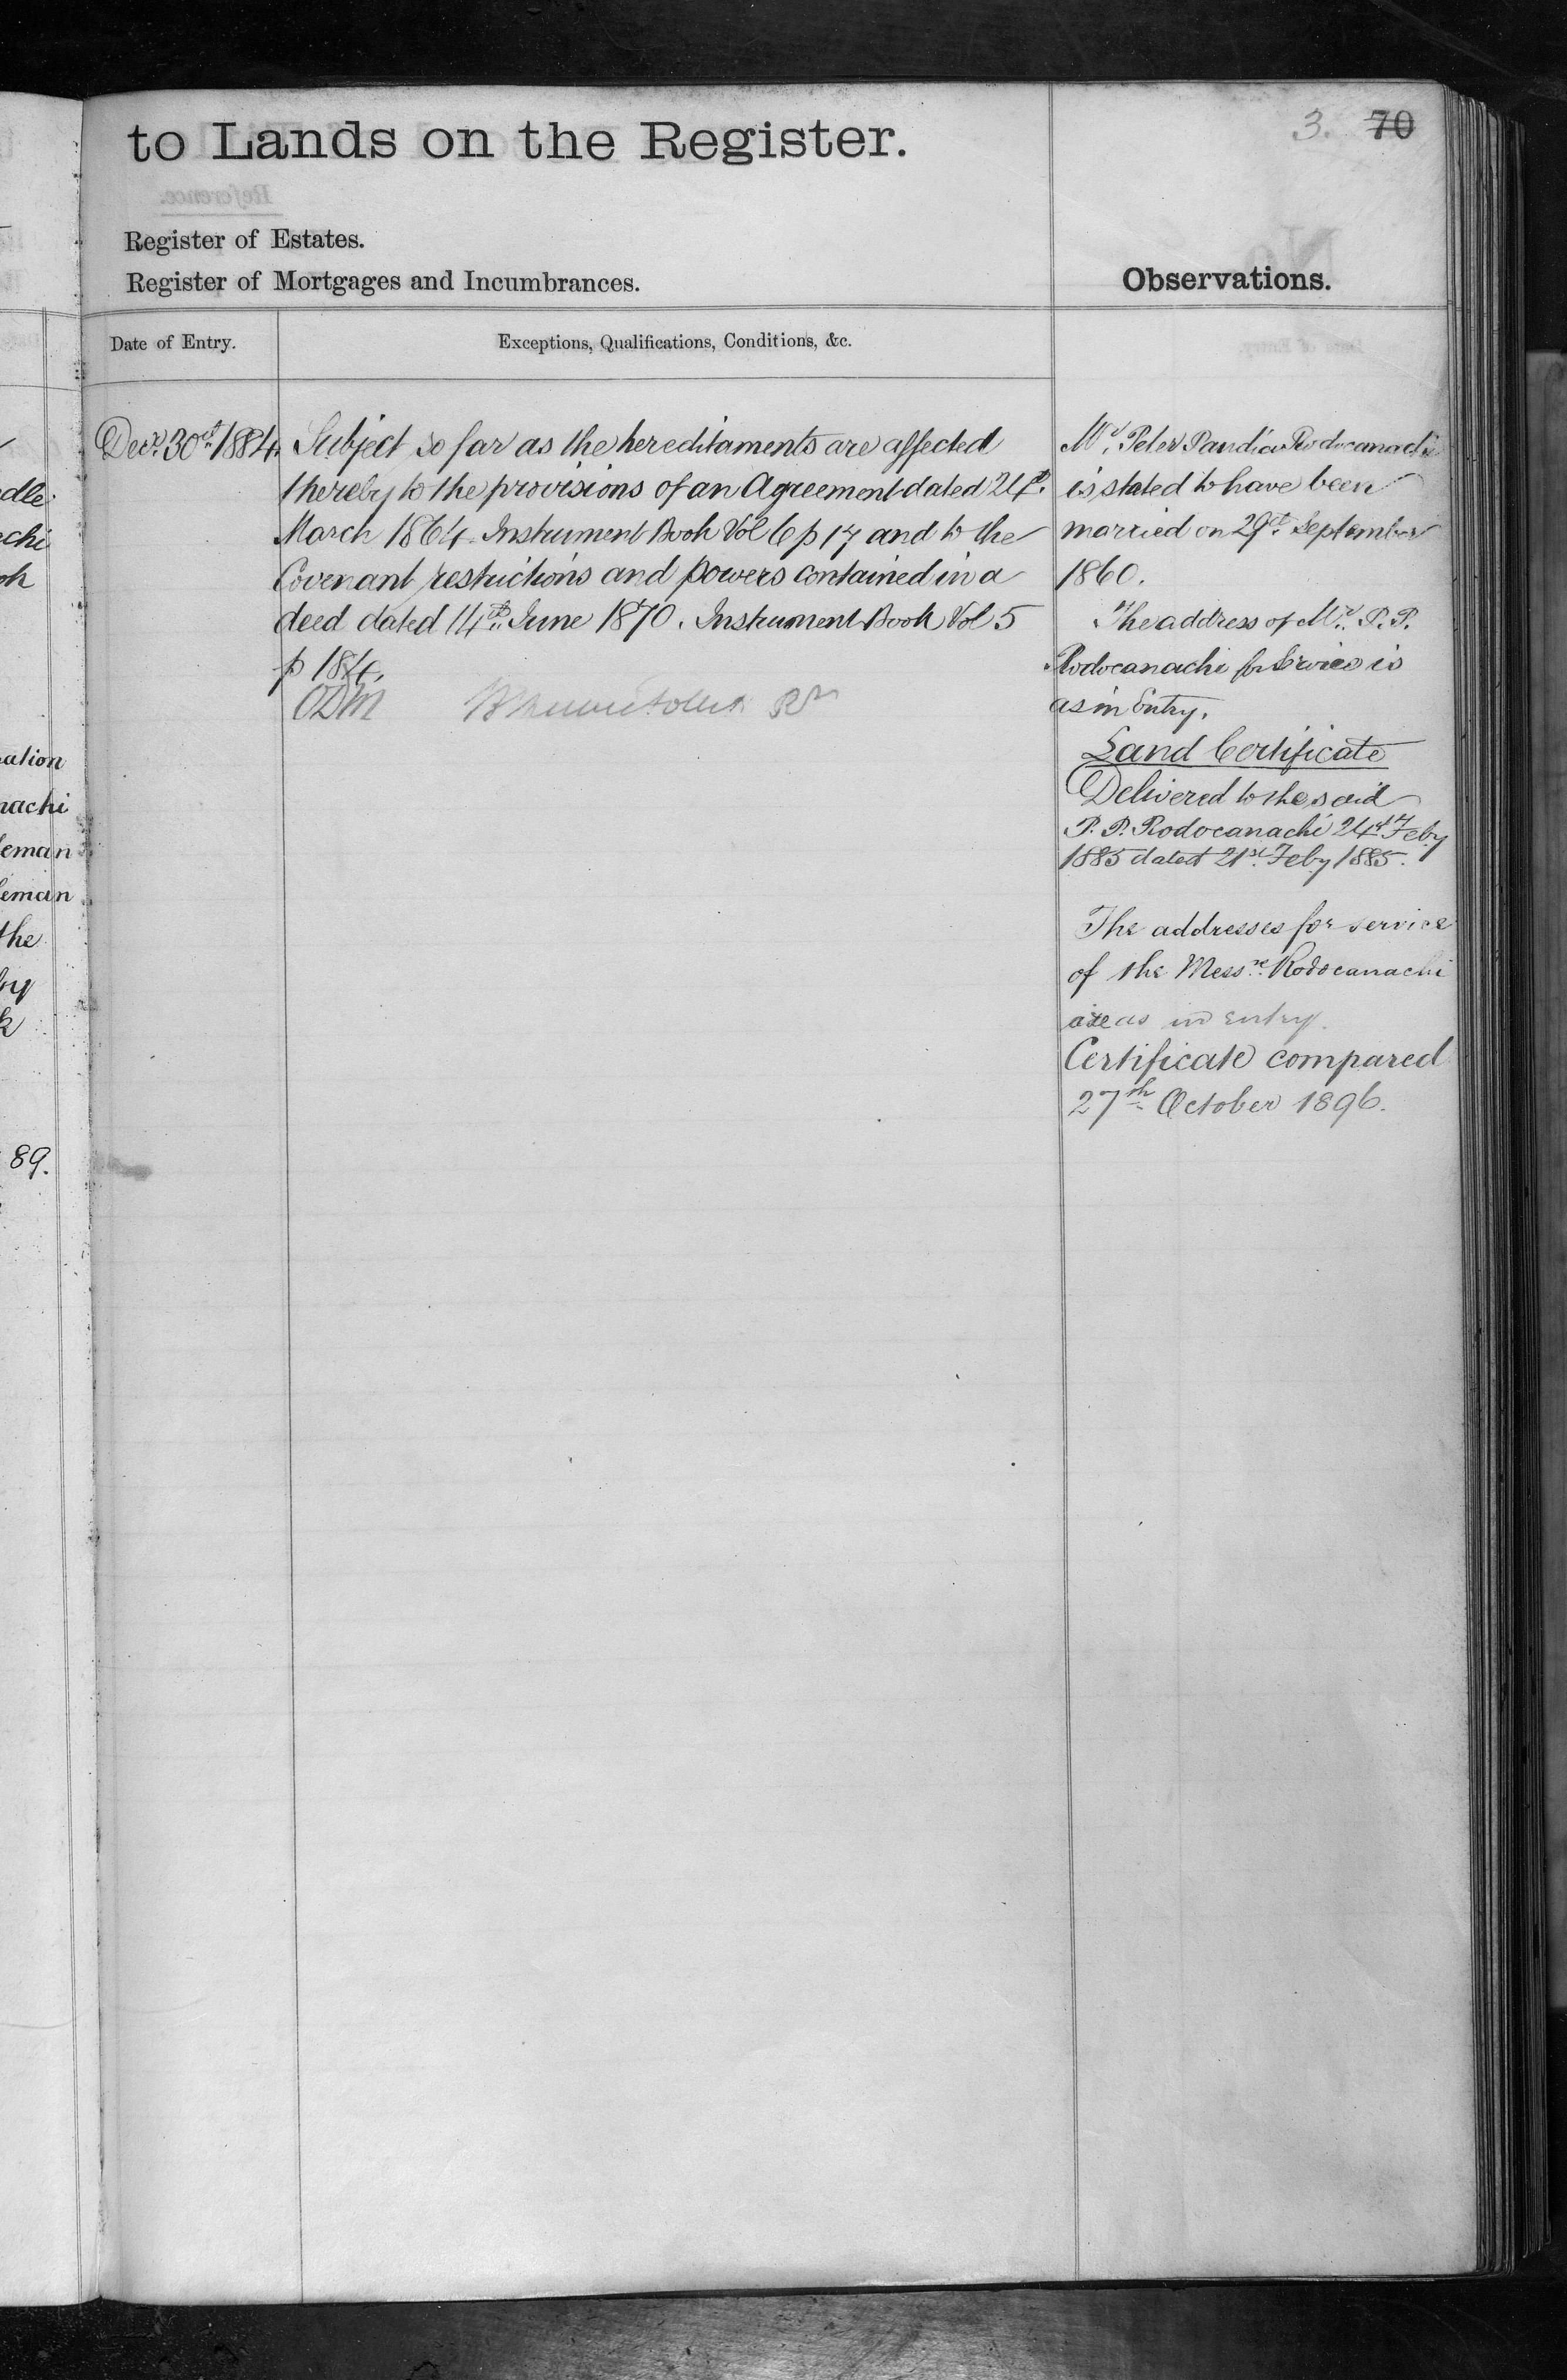 to Lands on the Register.
3. 70
Register of Estates.
Register of Mortgages and Incumbrances.
Observations.
Date of Entry.
Exceptions, Qualifications, Conditions, &c.
Decr. 30th 1884
Subject so far as the hereditaments are affected
thereby to the provisions of an Agreement dated 24th
March 1864 Instrument Book Vol 6 p 17 and to the
Covenant restrictions and powers contained in a
deed dated 14th June 1870. Instrument Book Vol 5
p 184.
ODM
Mr. Peter Pandia Rodocanachi
is stated to have been
married on 29th September
1860.
The address of Mr. P. P.
Rodocanachi for Service is
as in Entry.
Land Certificate
Delivered to the said
P. P. Rodocanachi 24th Feby
1885 dated 21st Feby 1885.
The addresses for service
of the Messrs. Rodocanachi
are as in entry.
Certificate compared
27th October 1896.
dle
chi
ation
nachi
eman
eman
the
by
89.